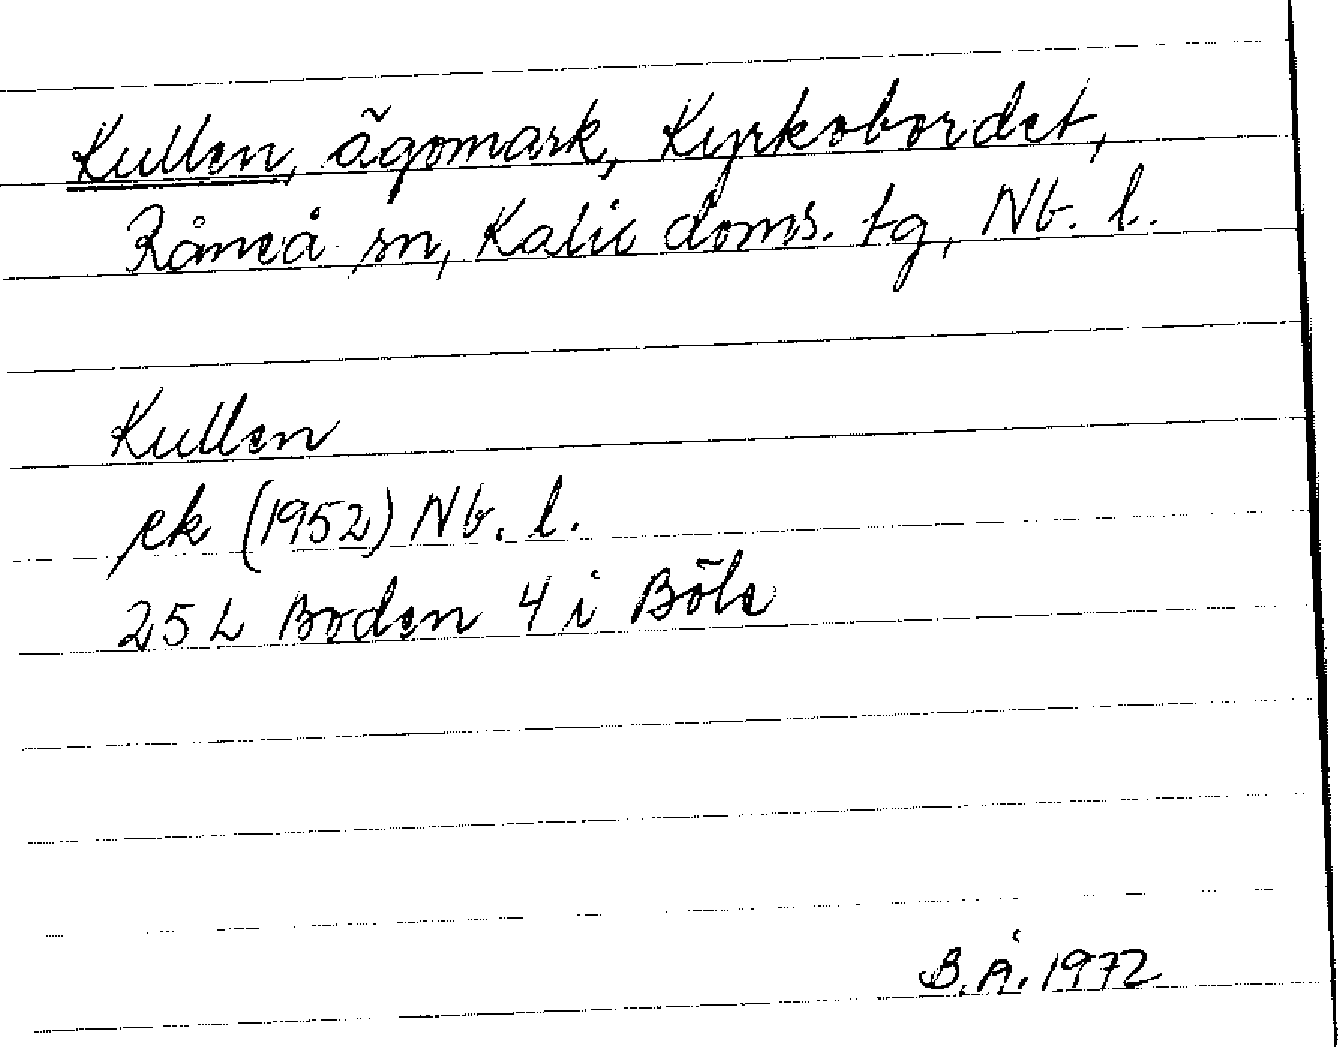 Kullen, ägomark, Kyrkobordet,
Råneå sn, Kalix doms. tg, Nb. l.
Kullen
ek (1952) Nb. l.
25 L Boden 4 i Böle
B.Å. 1972